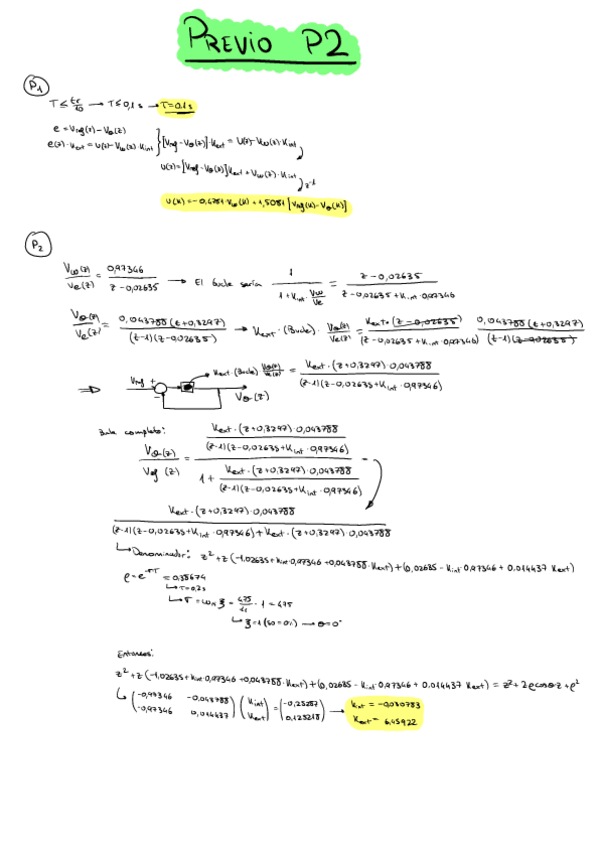 PREVIO P2
P1
T ≤ tr/10 → T ≤ 0,1 s → T = 0.1 s
e = Vref(z) - Vθ(z)
e(z)·Kext = U(z) - Vω(z)·Kint } [Vref - Vθ(z)]·Kext = U(z) - Vω(z)·Kint
U(z) = [Vref - Vθ(z)]Kext + Vω(z)·Kint
z-1
P2
Vω(z)/Ve(z) = 0,97346/(z - 0,02635) → El bucle sería 1/(1 + Kint · Vω/Ve) = (z - 0,02635)/(z - 0,02635 + Kint · 0,97346)
Vθ(z)/Ve(z) = 0,043788(z + 0,3297)/((z-1)(z - 0,02635)) → Kext·(Bucle)·Vθ(z)/Ve(z) = Kext·(z - 0,02635)/(z - 0,02635 + Kint · 0,97346) · 0,043788(z + 0,3297)/((z-1)(z - 0,02635))
⇒ Vref + - Kext·(Bucle) Vθ(z)/Ve(z) = Kext·(z + 0,3297)·0,043788/((z-1)(z - 0,02635 + Kint · 0,97346))
Vθ(z)
Bucle completo:
Vθ(z)/Vref(z) = [Kext·(z + 0,3297)·0,043788/((z-1)(z - 0,02635 + Kint · 0,97346))]/[1 + Kext·(z + 0,3297)·0,043788/((z-1)(z - 0,02635 + Kint · 0,97346))]
Kext·(z + 0,3297)·0,043788/((z-1)(z - 0,02635 + Kint · 0,97346) + Kext·(z + 0,3297)·0,043788)
Denominador: z² + z(-1,02635 + Kint·0,97346 + 0,043788·Kext) + (0,02635 - Kint 0,97346 + 0.014437 Kext)
= 0,38674
ξ = 1 (SO = 0%) → θ = 0°
Entonces:
z² + z(-1,02635 + Kint 0,97346 + 0,043788·Kext) + (0,02635 - Kint 0,97346 + 0.014437 Kext) = z² + 2ρcosθz + ρ²
(-0,97346 -0,043788 / -0,97346 0,014437)(Kint / Kext) = (-0,25287 / 0,123218) → Kint = -0,080783
Kext = 6,45922